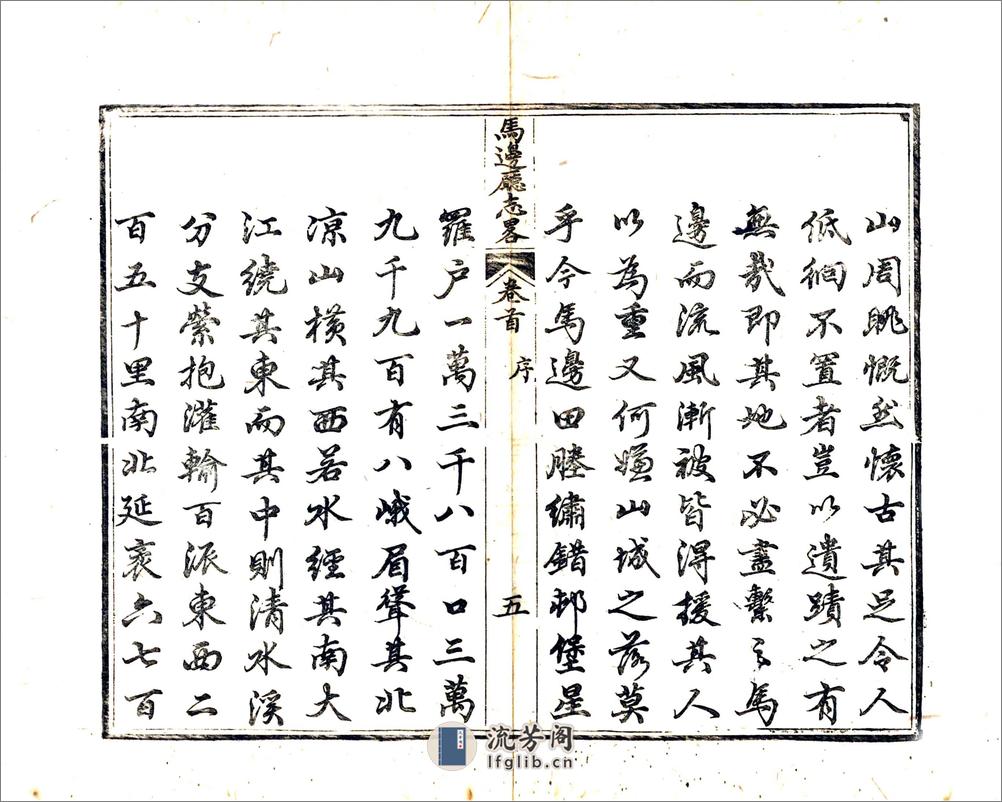 山周眺慨然懷古其足令人
低徊不置者豈以遺蹟之有
無哉即其地不必盡繫之馬
邊而流風漸被皆得援其人
以為重又何嫌山城之落莫
乎今馬邊田塍繡錯邨堡星
馬邊廳志畧 卷首 序 五
羅户一萬三千八百口三萬
九千九百有八峨眉聳其北
凉山橫其西若水經其南大
江繞其東而其中則清水溪
分支縈抱灌輸百派東西二
百五十里南北延袤六七百
流芳阁
lfglib.cn